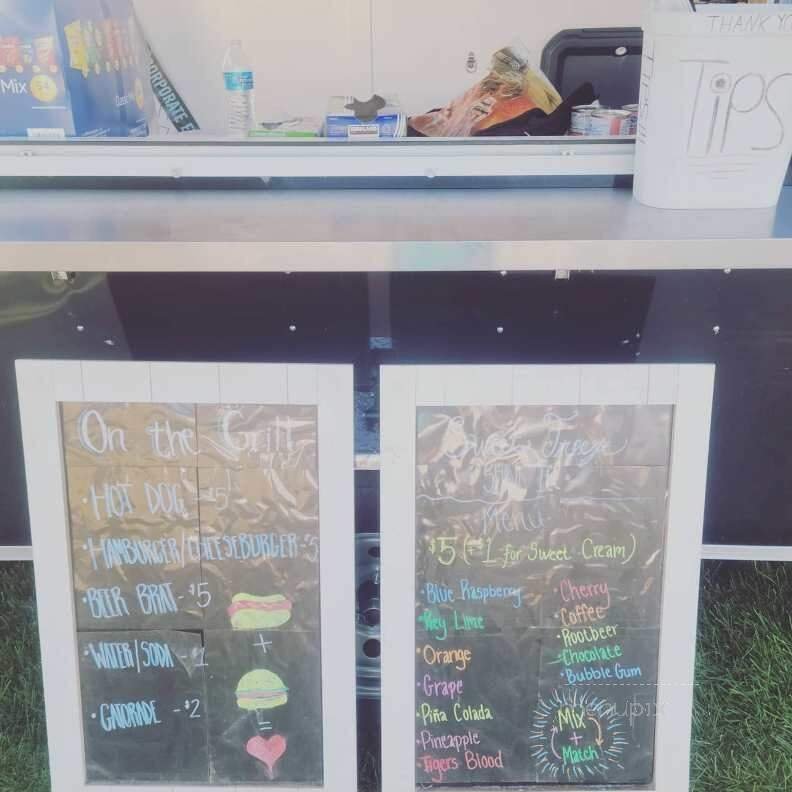 Mix
CORPORATE E
THANK YO
TiPS
On the Grill
·HOT DOG - $5
·HAMBURGER/CHEESEBURGER-$5
·BEER BRAT- $5
·WATER/SODA - $1
·GATORADE - $2
+
=
Menu
$5 (+$1 for Sweet Cream)
·Blue Raspberry
·Key Lime
·Orange
·Grape
·Piña Colada
·Pineapple
·Tigers Blood
·Cherry
·Coffee
·Rootbeer
·Chocolate
·Bubble Gum
Mix
+
Match